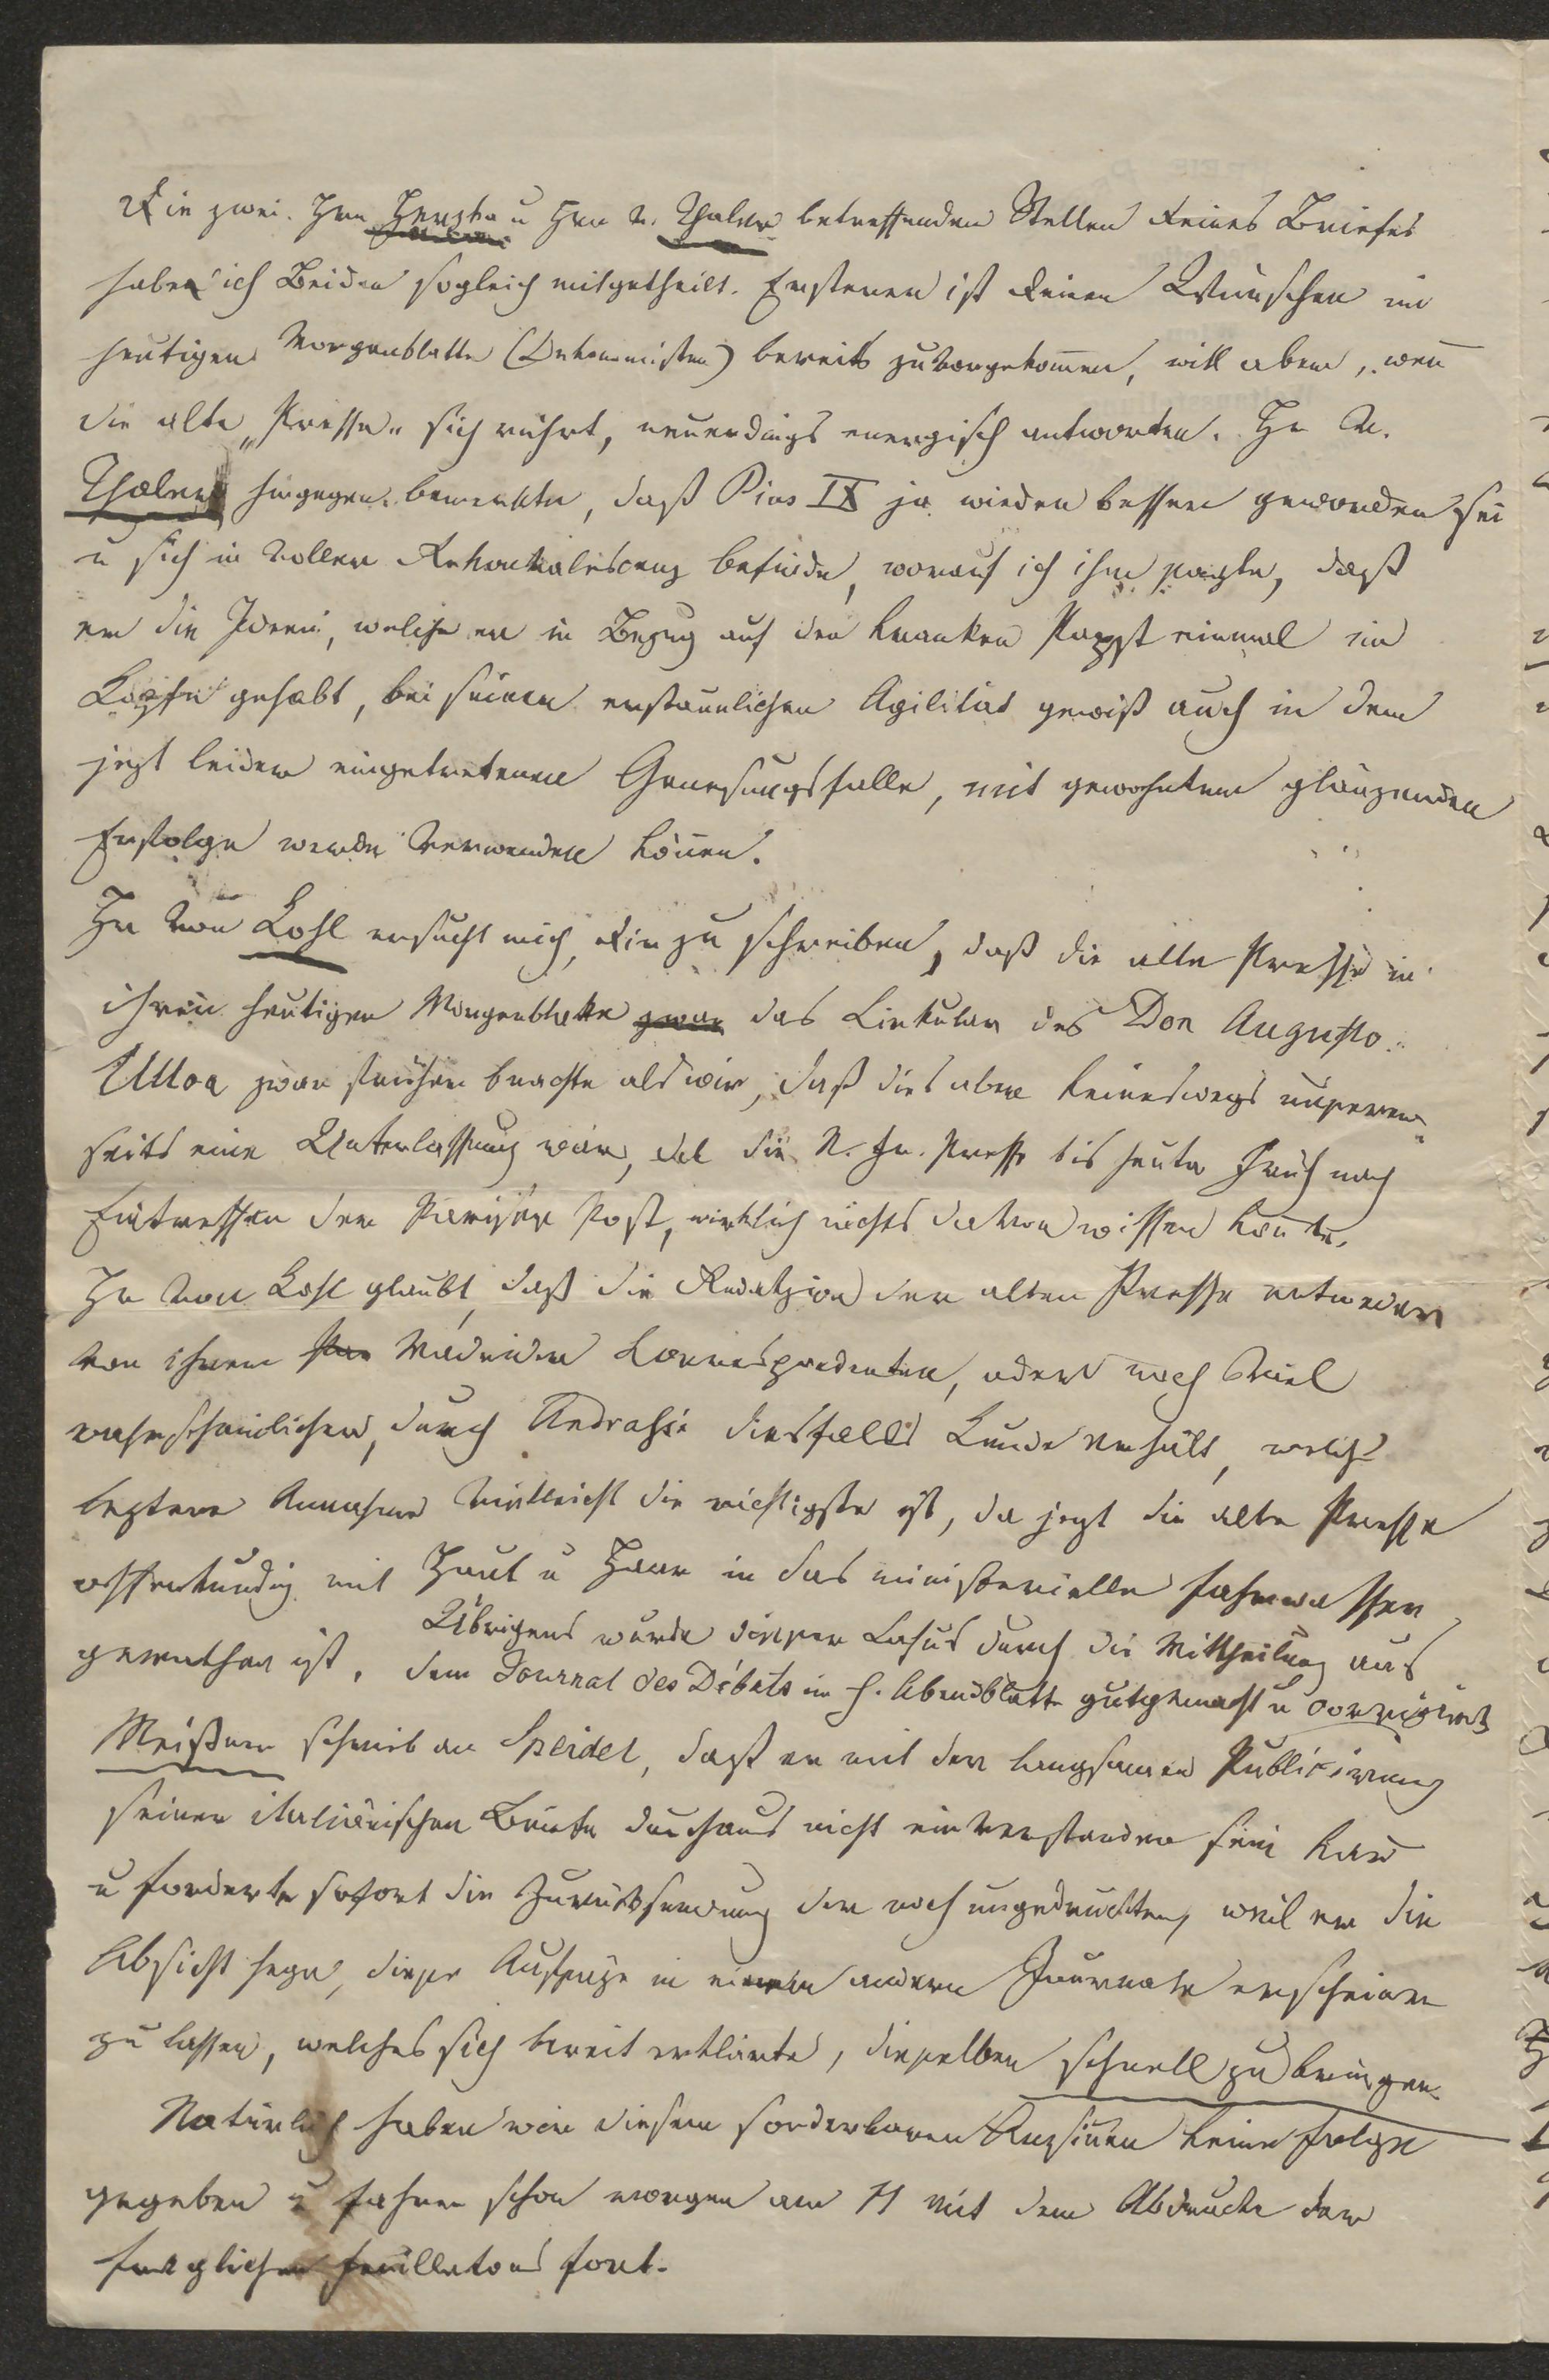 Die zwei Hrn Hertzka u Hrn v. Thaler betreffenden Stellen Deines Briefes
habe ich Beiden sogleich mitgetheilt. Ersterer ist Deinen Wünschen im
heutigen Morgenblatte (Oekonomisten) bereits zuvorgekom̄en, will aber, wen̄
die alte „Presse" sich rührt, neuerdings energisch antworten. Hr v.
Thaler hingegen bemerkte, daß Pius IX ja wieder besser geworden sei
u sich in voller Rekonvaleszenz befinde, worauf ich ihm sagte, daß
er die Ideen, welche er in Bezug auf den kranken Papst einmal im
Kopfe gehabt, bei seiner erstaunlichen Agilität gewiß auch in dem
jezt leider eingetretenen Genesungsfalle, mit gewohntem glänzenden
Erfolge werde verwenden kön̄en.
Hr von Kohl ersucht mich, Dir zu schreiben, daß die alte Presse in
ihrem heutigen Morgenblatte zwar das Cirkular des Don Augusto
Ulloa zwar früher brachte als wir, daß dies aber keineswegs unserer-
seits eine Unterlassung war, da die N. Fr. Presse bis heute Früh nach
Eintreffen der Pariser Post, wirklich nichts davon wissen kon̄te.
Hr von Kohl glaubt, daß die Redakzion der alten Presse entweder
von ihrem Madrider Korrespondenten, oder noch viel
wahrscheinlicher, durch Andrassi diesfalls Kunde erhält, welch
leztere Annahme vielleicht die richtigste ist, da jezt die alte Presse
offenkundig mit Haut u Haar in das ministerielle Fahrwasser
gerathen ist. Übrigens wurde dieser Casus durch die Mittheilung aus
dem Journal des Débats im h. Abendblatte gutgemacht u corrigirt
Meißner schrieb an Speidel, daß er mit der langsamen Publicirung
seiner italiänischen Briefe durchaus nicht einverstanden sein kan̄
u forderte sofort die Zurücksendung der noch ungedruckten, weil er die
Absicht hege, diese Aufsätze in einem andern Journale erscheinen
zu lassen, welches sich bereit erklärte, dieselben schnell zu bringen.
Natürlich haben wir diesem sonderbaren Ansin̄en keine Folge
gegeben u fahren schon morgen am 11 mit dem Abdrucke der
fraglichen Feuilletons fort.